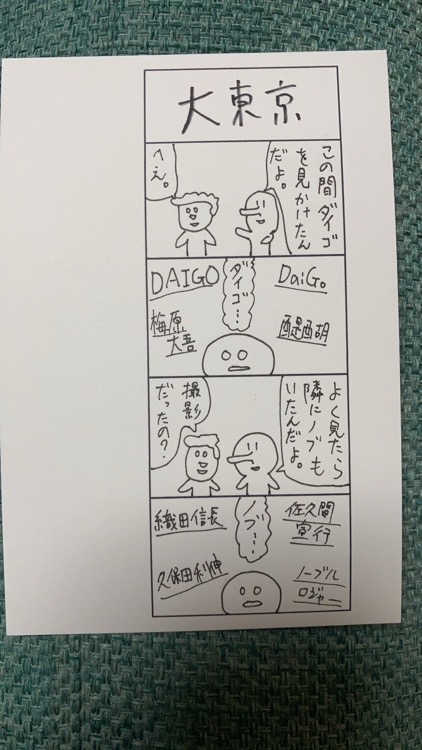 大東京
この間ダイゴ
を見かけたん
だよ。
へぇ。
DaiGo
ダイゴ…
DAIGO
醍醐
梅原
大吾
よく見たら
隣にノブも
いたんだよ。
撮影
だったの？
佐久間
宣行
ノブ…
織田信長
ノーブル
ロジャー
久保田利伸